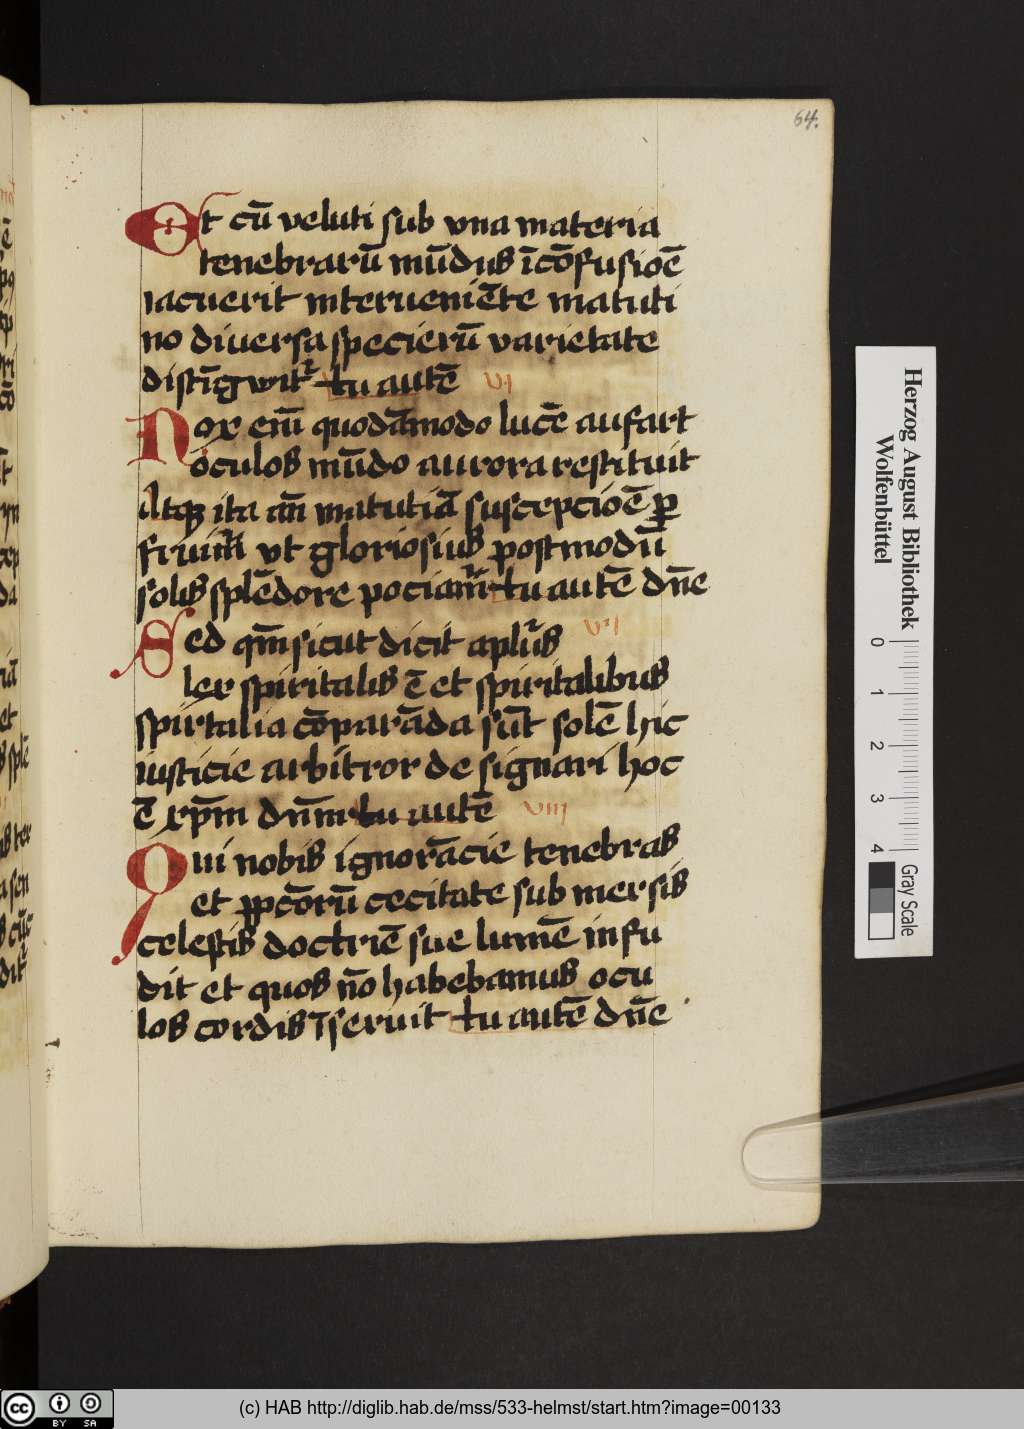 64.
Et cū veluti sub vna materia
tenebrarū mūdus ī cōfusioē
iacuerit interueniēte matuti
no diuersa specierū varietate
distīgwit᷑ tu autē vı
Nox em̄ quodāmodo lucē aufart
oculos mūdo aurora restituit
Atqꝫ ita an̄ matutiā suscepcioē ꝑ
fruim᷑ vt gloriosius postmodū
solis splēdore pociam᷑ tu autē dn̄e
Sed qm̄ sicut dicit aplus vıı
lex spiritalis ē et spiritalibus
spirtalia cōparāda sūt solē hic
iusticie arbitror designari hoc
ē xp̄m dn̄m tu autē vııı
Qui nobis ignorācie tenebras
et ꝑpcōrū cecitate sub mersis
celestis doctriē sue lumē infu
dit et quos nō habebamus ocu
los cordis īseruit tu autē dn̄e
Herzog August Bibliothek
Wolfenbüttel
0 1 2 3 4
Gray Scale
cc BY SA
(c) HAB http://diglib.hab.de/mss/533-helmst/start.htm?image=00133